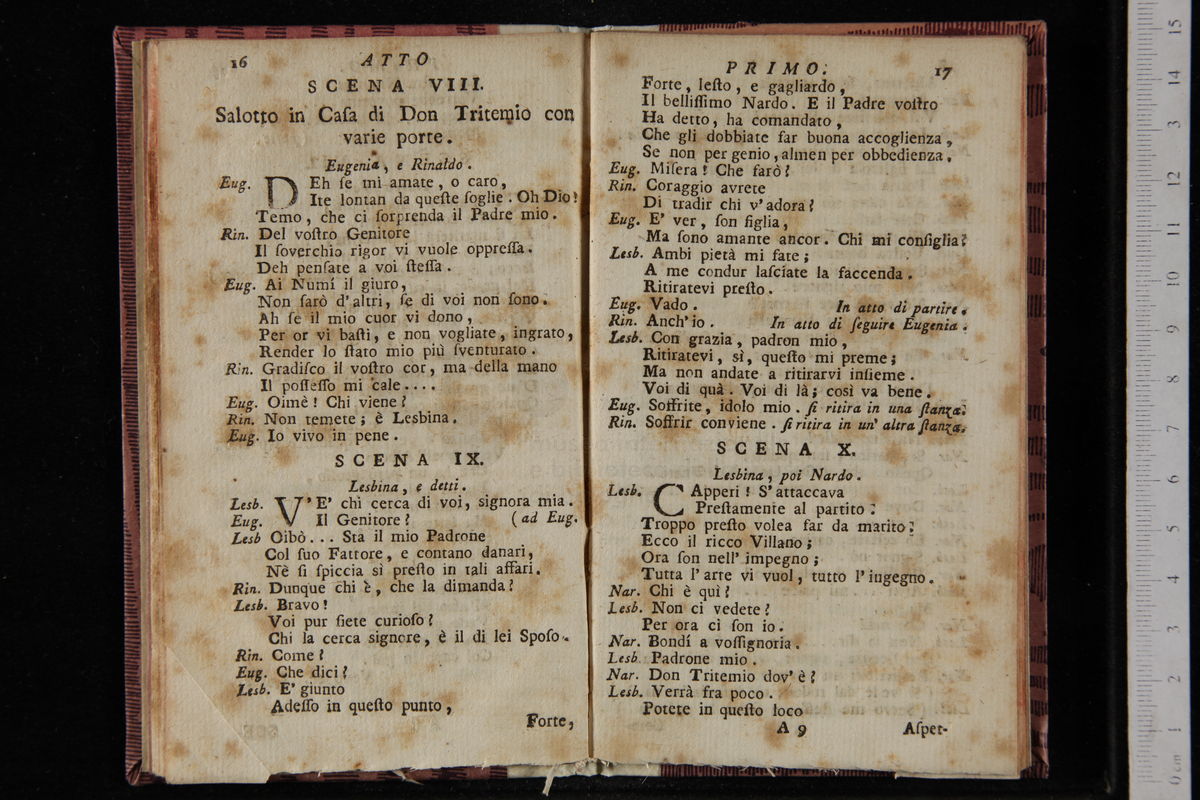 16 ATTO
SCENA VIII.
Salotto in Caſa di Don Tritemio con
varie porte.
Eugenia, e Rinaldo.
Eug. DEh ſe mi amate, o caro,
Ite lontan da queſte ſoglie. Oh Dio!
Temo, che ci ſorprenda il Padre mio.
Rin. Del voſtro Genitore
Il ſoverchio rigor vi vuole oppreſſa.
Deh penſate a voi ſteſſa.
Eug. Ai Numí il giuro,
Non ſarò d'altri, ſe di voi non ſono.
Ah ſe il mio cuor vi dono,
Per or vi baſti, e non vogliate, ingrato,
Render lo ſtato mio più ſventurato.
Rin. Gradiſco il voſtro cor, ma della mano
Il poſſeſſo mi cale....
Eug. Oimè! Chi viene?
Rin. Non temete; è Lesbina.
Eug. Io vivo in pene.
SCENA IX.
Lesbina, e detti.
Lesb. V'E' chi cerca di voi, signora mia.
Eug. Il Genitore? (ad Eug.
Lesb Oibò... Sta il mio Padrone
Col ſuo Fattore, e contano danari,
Nè ſi ſpiccia sì preſto in tali affari.
Rin. Dunque chi è, che la dimanda?
Lesb. Bravo!
Voi pur ſiete curioſo?
Chi la cerca signore, è il di lei Spoſo.
Rin. Come?
Eug. Che dici?
Lesb. E' giunto
Adeſſo in queſto punto,
Forte,
PRIMO. 17
Forte, leſto, e gagliardo,
Il belliſſimo Nardo. E il Padre voſtro
Ha detto, ha comandato,
Che gli dobbiate far buona accoglienza,
Se non per genio, almen per obbedienza.
Eug. Miſera! Che farò?
Rin. Coraggio avrete
Di tradir chi v'adora?
Eug. E' ver, ſon figlia,
Ma ſono amante ancor. Chi mi conſiglia?
Lesb. Ambi pietà mi fate;
A me condur laſciate la faccenda.
Ritiratevi preſto.
Eug. Vado. In atto di partire.
Rin. Anch'io. In atto di ſeguire Eugenia.
Lesb. Con grazia, padron mio,
Ritiratevi, sì, queſto mi preme;
Ma non andate a ritirarvi inſieme.
Voi di quà. Voi di là; così va bene.
Eug. Soffrite, idolo mio. ſi ritira in una ſtanza.
Rin. Soffrir conviene. ſi ritira in un' altra ſtanza.
SCENA X.
Lesbina, poi Nardo.
Lesb. CApperi! S'attaccava
Preſtamente al partito:
Troppo preſto volea far da marito:
Ecco il ricco Villano;
Ora ſon nell' impegno;
Tutta l'arte vi vuol, tutto l'ingegno.
Nar. Chi è quì?
Lesb. Non ci vedete?
Per ora ci ſon io.
Nar. Bondí a voſſignoria.
Lesb. Padrone mio.
Nar. Don Tritemio dov'è?
Lesb. Verrà fra poco.
Potete in queſto loco
A 9 Aſpet-
0 cm 1 2 3 4 5 6 7 8 9 10 11 12 3 14 15